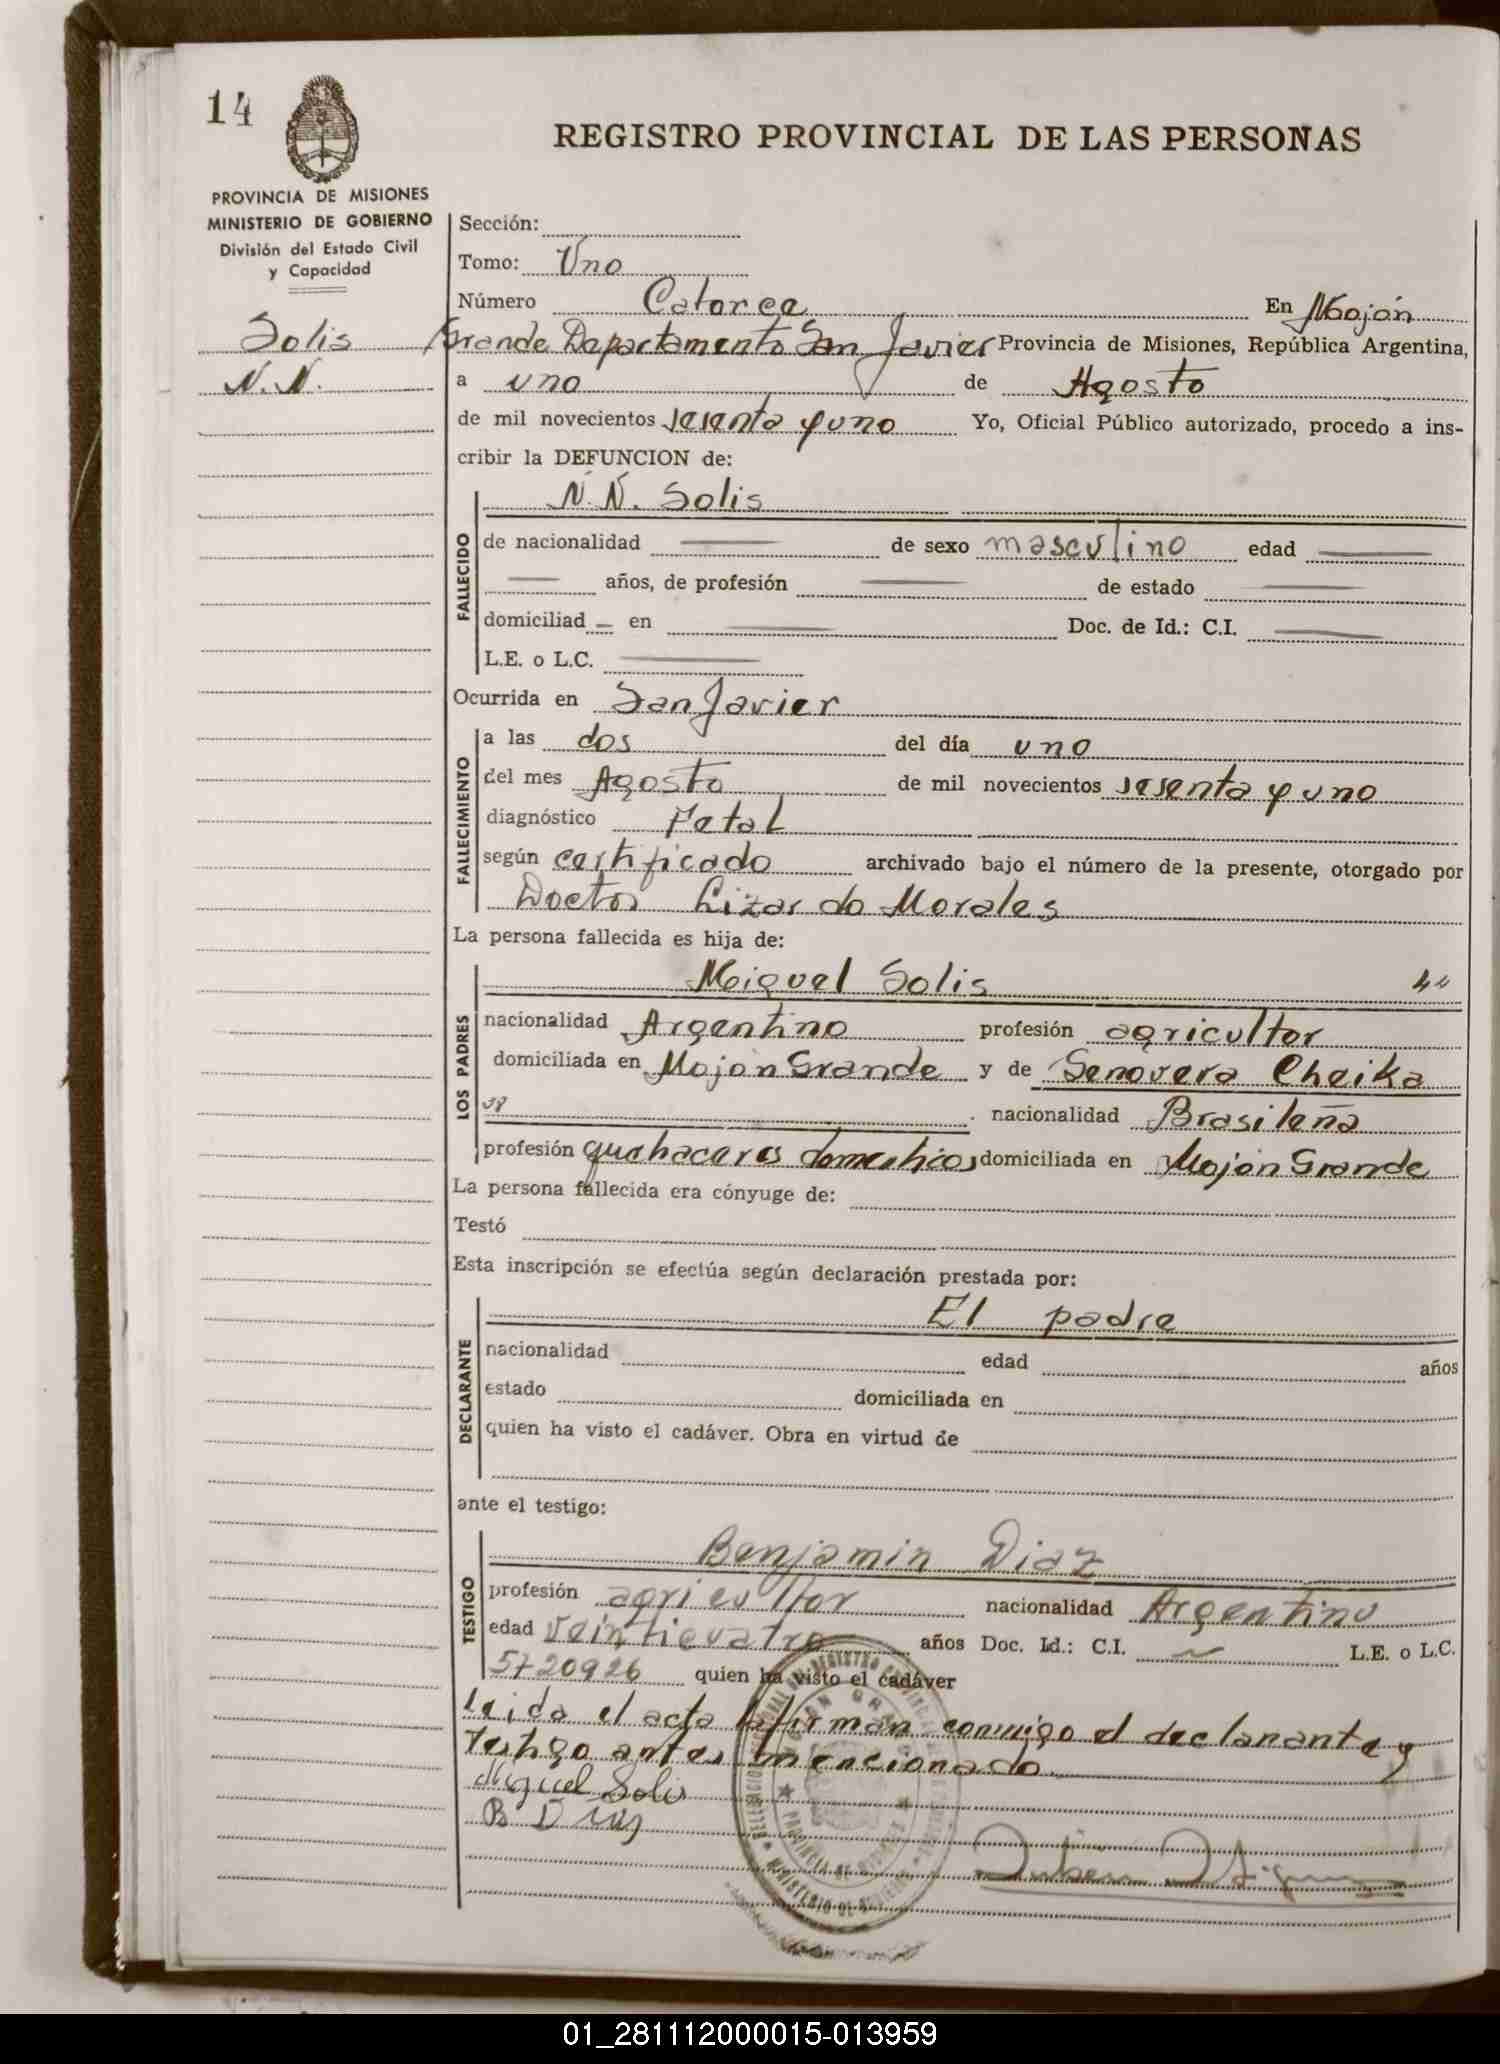 14
REGISTRO PROVINCIAL DE LAS PERSONAS
PROVINCIA DE MISIONES
MINISTERIO DE GOBIERNO
División del Estado Civil
y Capacidad
Solis
N.N.
Sección:
Tomo: Uno
Número Catorce En Mojón
Grande Departamento San Javier Provincia de Misiones, República Argentina,
a uno de Agosto
de mil novecientos sesenta y uno Yo, Oficial Público autorizado, procedo a ins-
cribir la DEFUNCION de:
FALLECIDO
N.N. Solis
de nacionalidad — de sexo masculino edad —
— años, de profesión — de estado —
domiciliad — en — Doc. de Id.: C.I. —
L.E. o L.C. —
Ocurrida en San Javier
FALLECIMIENTO
a las dos del día uno
del mes Agosto de mil novecientos sesenta y uno
diagnóstico Fetal
según certificado archivado bajo el número de la presente, otorgado por
Doctor Lizardo Morales
La persona fallecida es hija de:
LOS PADRES
Miguel Solis
nacionalidad Argentino profesión agricultor
domiciliada en Mojón Grande y de Genovera Cheika
38 nacionalidad Brasileña
profesión quehaceres domesticos domiciliada en Mojón Grande
La persona fallecida era cónyuge de:
Testó
Esta inscripción se efectúa según declaración prestada por:
DECLARANTE
El padre
nacionalidad edad años
estado domiciliada en
quien ha visto el cadáver. Obra en virtud de
ante el testigo:
TESTIGO
Benjamin Diaz
profesión agricultor nacionalidad Argentino
edad veinticuatro años Doc. Id.: C.I. L.E. o L.C.
5720926 quien ha visto el cadáver
leida el acta la firman conmigo el declarante y
testigo antes mencionado.
Miguel Solis
B Dias
PROVINCIA DE MISIONES
MINISTERIO DE GOBIERNO
01_281112000015-013959